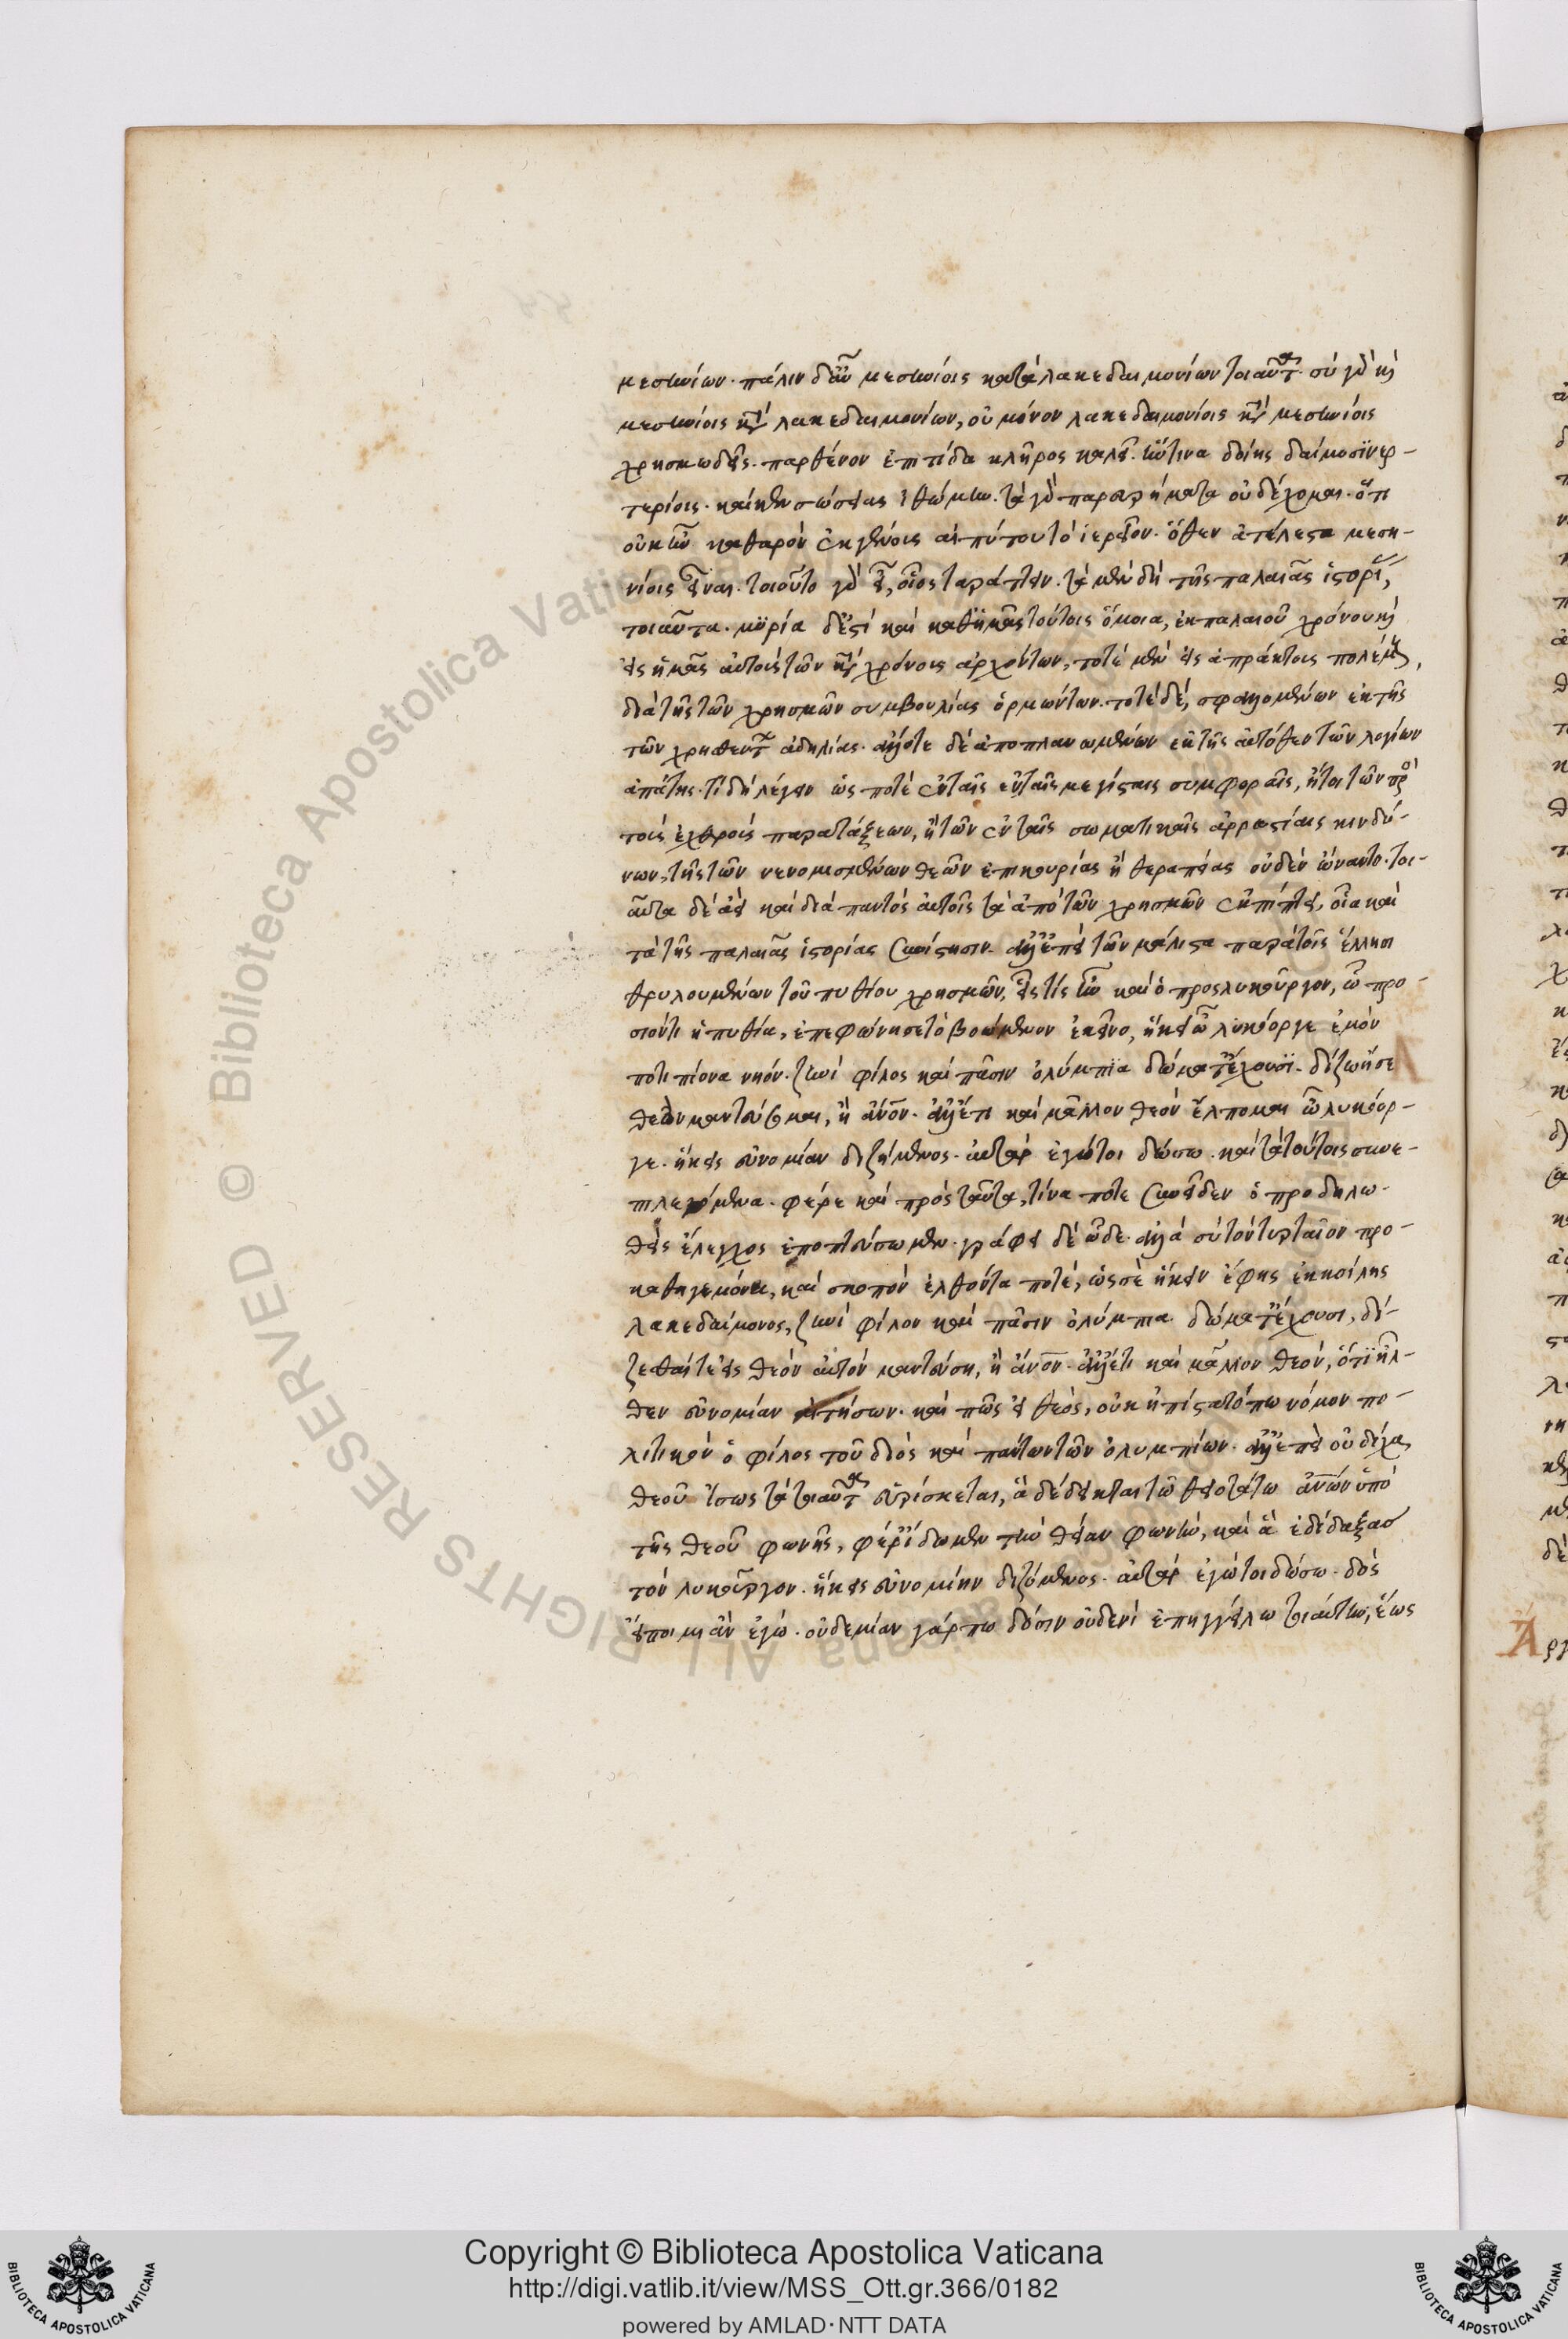 μεσηνίων. πάλιν δ' αὖ μεσηνίοις κατὰ λακεδαιμονίων τοιαῦτα. σὺ γὰρ καὶ
μεσηνίοις κατὰ λακεδαιμονίων, οὐ μόνον λακεδαιμονίοις κατὰ μεσηνίοις
χρησμωδεῖς. παρθένον ἐπιτίδα κλῆρος καλεῖ. ἥντινα δοίης δαίμοσϊ νερ-
τερίοις. καί κεν σώσειας ἰθώμην. τὰ γὰρ παραρήματα οὐ δέχομαι. ὅτι
οὐκ ἦν καθαρὸν ἐκγένοις αἰπύτου τὸ ἱερεῖον. ὅθεν ἀτέλεστα μεση-
νίοις εἶναι. τοιοῦτο γὰρ εἶ, οἷος ταράττειν. τὰ μὲν δὴ τῆς παλαιᾶς ἱστορίας,
τοιαῦτα. μϋρία δ' ἐστὶ καὶ καθ' ἡμᾶς τούτοις ὅμοια, ἐκ παλαιοῦ χρόνου καὶ
εἰς ἡμᾶς αὐτοὺς τῶν κατὰ χρόνοις ἀρχόντων, τοτὲ μὲν εἰς ἀπράκτοις πολέμοις,
διὰ τῆς τῶν χρησμῶν συμβουλίας ὁρμώντων. τοτὲ δέ, σφαλλομένων ἐκ τῆς
τῶν χρηθέντων ἀδηλίας. ἄλλοτε δὲ ἀποπλανωμένων ἐκ τῆς αὐτόθεν τῶν λογίων
ἀπάτης. τί δὴ λέγειν ὡς ποτὲ ἐν ταῖς ἐν ταῖς μεγίσταις συμφοραῖς, ἤτοι τῶν πρὸς
τοὺς ἐχθροὺς παρατάξεων, ἢ τῶν ἐν ταῖς σωματικαῖς ἀρρωστίαις κινδύ-
νων, τῆς τῶν νενομισμένων θεῶν ἐπικουρίας ἢ θεραπείας οὐδὲν ὤναντο. τοι-
αῦτα δὲ ἀεὶ καὶ διὰ παντὸς αὐτοῖς τὰ ἀπὸ τῶν χρησμῶν ἐκπίπτει, οἷα καὶ
τὰ τῆς παλαιᾶς ἱστορίας συνίστησιν. ἀλλ' ἐπεὶ τῶν μάλιστα παρὰ τοῖς ἕλλησι
θρυλουμένων τοῦ πυθίου χρησμῶν, εἷς τίς ἦν καὶ ὁ πρὸς λυκοῦργον, ὧ προ-
σιόντι ἡ πυθία, ἐπεφώνησε τὸ βοώμενον ἐκεῖνο, ἥκεις ὦ λυκόοργε ἐμὸν
ποτὶ πίονα νηόν. ζηνὶ φίλος καὶ πᾶσιν ὀλύμπϊα δώματ' ἔχουσϊ. δίζω ἤ σε
θεὸν μαντεύσομαι, ἢ ἄνον. ἀλλ' ἔτι καὶ μᾶλλον θεὸν ἔλπομαι ὦ λυκόορ-
γε. ἥκεις εὐνομίαν διζήμενος. αὐτὰρ ἐγώ τοι δώσω. καὶ τὰ τούτοις συνε-
πιλεγόμενα. φέρε καὶ πρὸς ταῦτα, τίνα ποτε συνεῖδεν ὁ προδηλω-
θεὶς ἔλεγχος ἐποπτεύσωμεν. γράφει δὲ ὧδε. ἀλλὰ σὺ τὸν τυρταῖον προ-
καθηγεμόνα, καὶ σκοπὸν ἐλθόντα ποτέ, ὡς σὲ ἥκειν ἔφης ἐκ κοίλης
λακεδαίμονος, ζηνὶ φίλον καὶ πᾶσιν ὀλύμπια δώματ' ἔχουσι, δί-
ζεθαί τε εἰς θεὸν αὐτὸν μαντεύση, ἢ ἄνον. ἀλλ' ἔτι καὶ μᾶλλον θεόν, ὅτϊ ἦλ-
θεν εὐνομίαν αἰτήσων. καὶ πῶς εἰ θεός, οὐκ ἠπίστατό πω νόμον πο-
λιτικὸν ὁ φίλος τοῦ διὸς καὶ πάντων τῶν ὀλυμπίων. ἀλλ' ἐπεὶ οὐ δίχα
θεοῦ ἴσως τὰ τοιαῦτα εὑρίσκεται, ἃ δέδεικται τῶ θειοτάτω ἀνῶν ὑπὸ
τῆς θεοῦ φωνῆς, φέρ' ἴδωμεν τὴν θείαν φωνήν, καὶ ἃ ἐδίδαξας
τὸν λυκοῦργον. ἥκεις εὐνομίην διζόμενος. αὐτὰρ ἐγώ τοι δώσω. δὸς
εἴποιμι ἂν ἐγώ. οὐδεμίαν γάρ πω δόσιν οὐδενὶ ἐπηγγείλω τοιαύτην, ἕως
Ἀργ